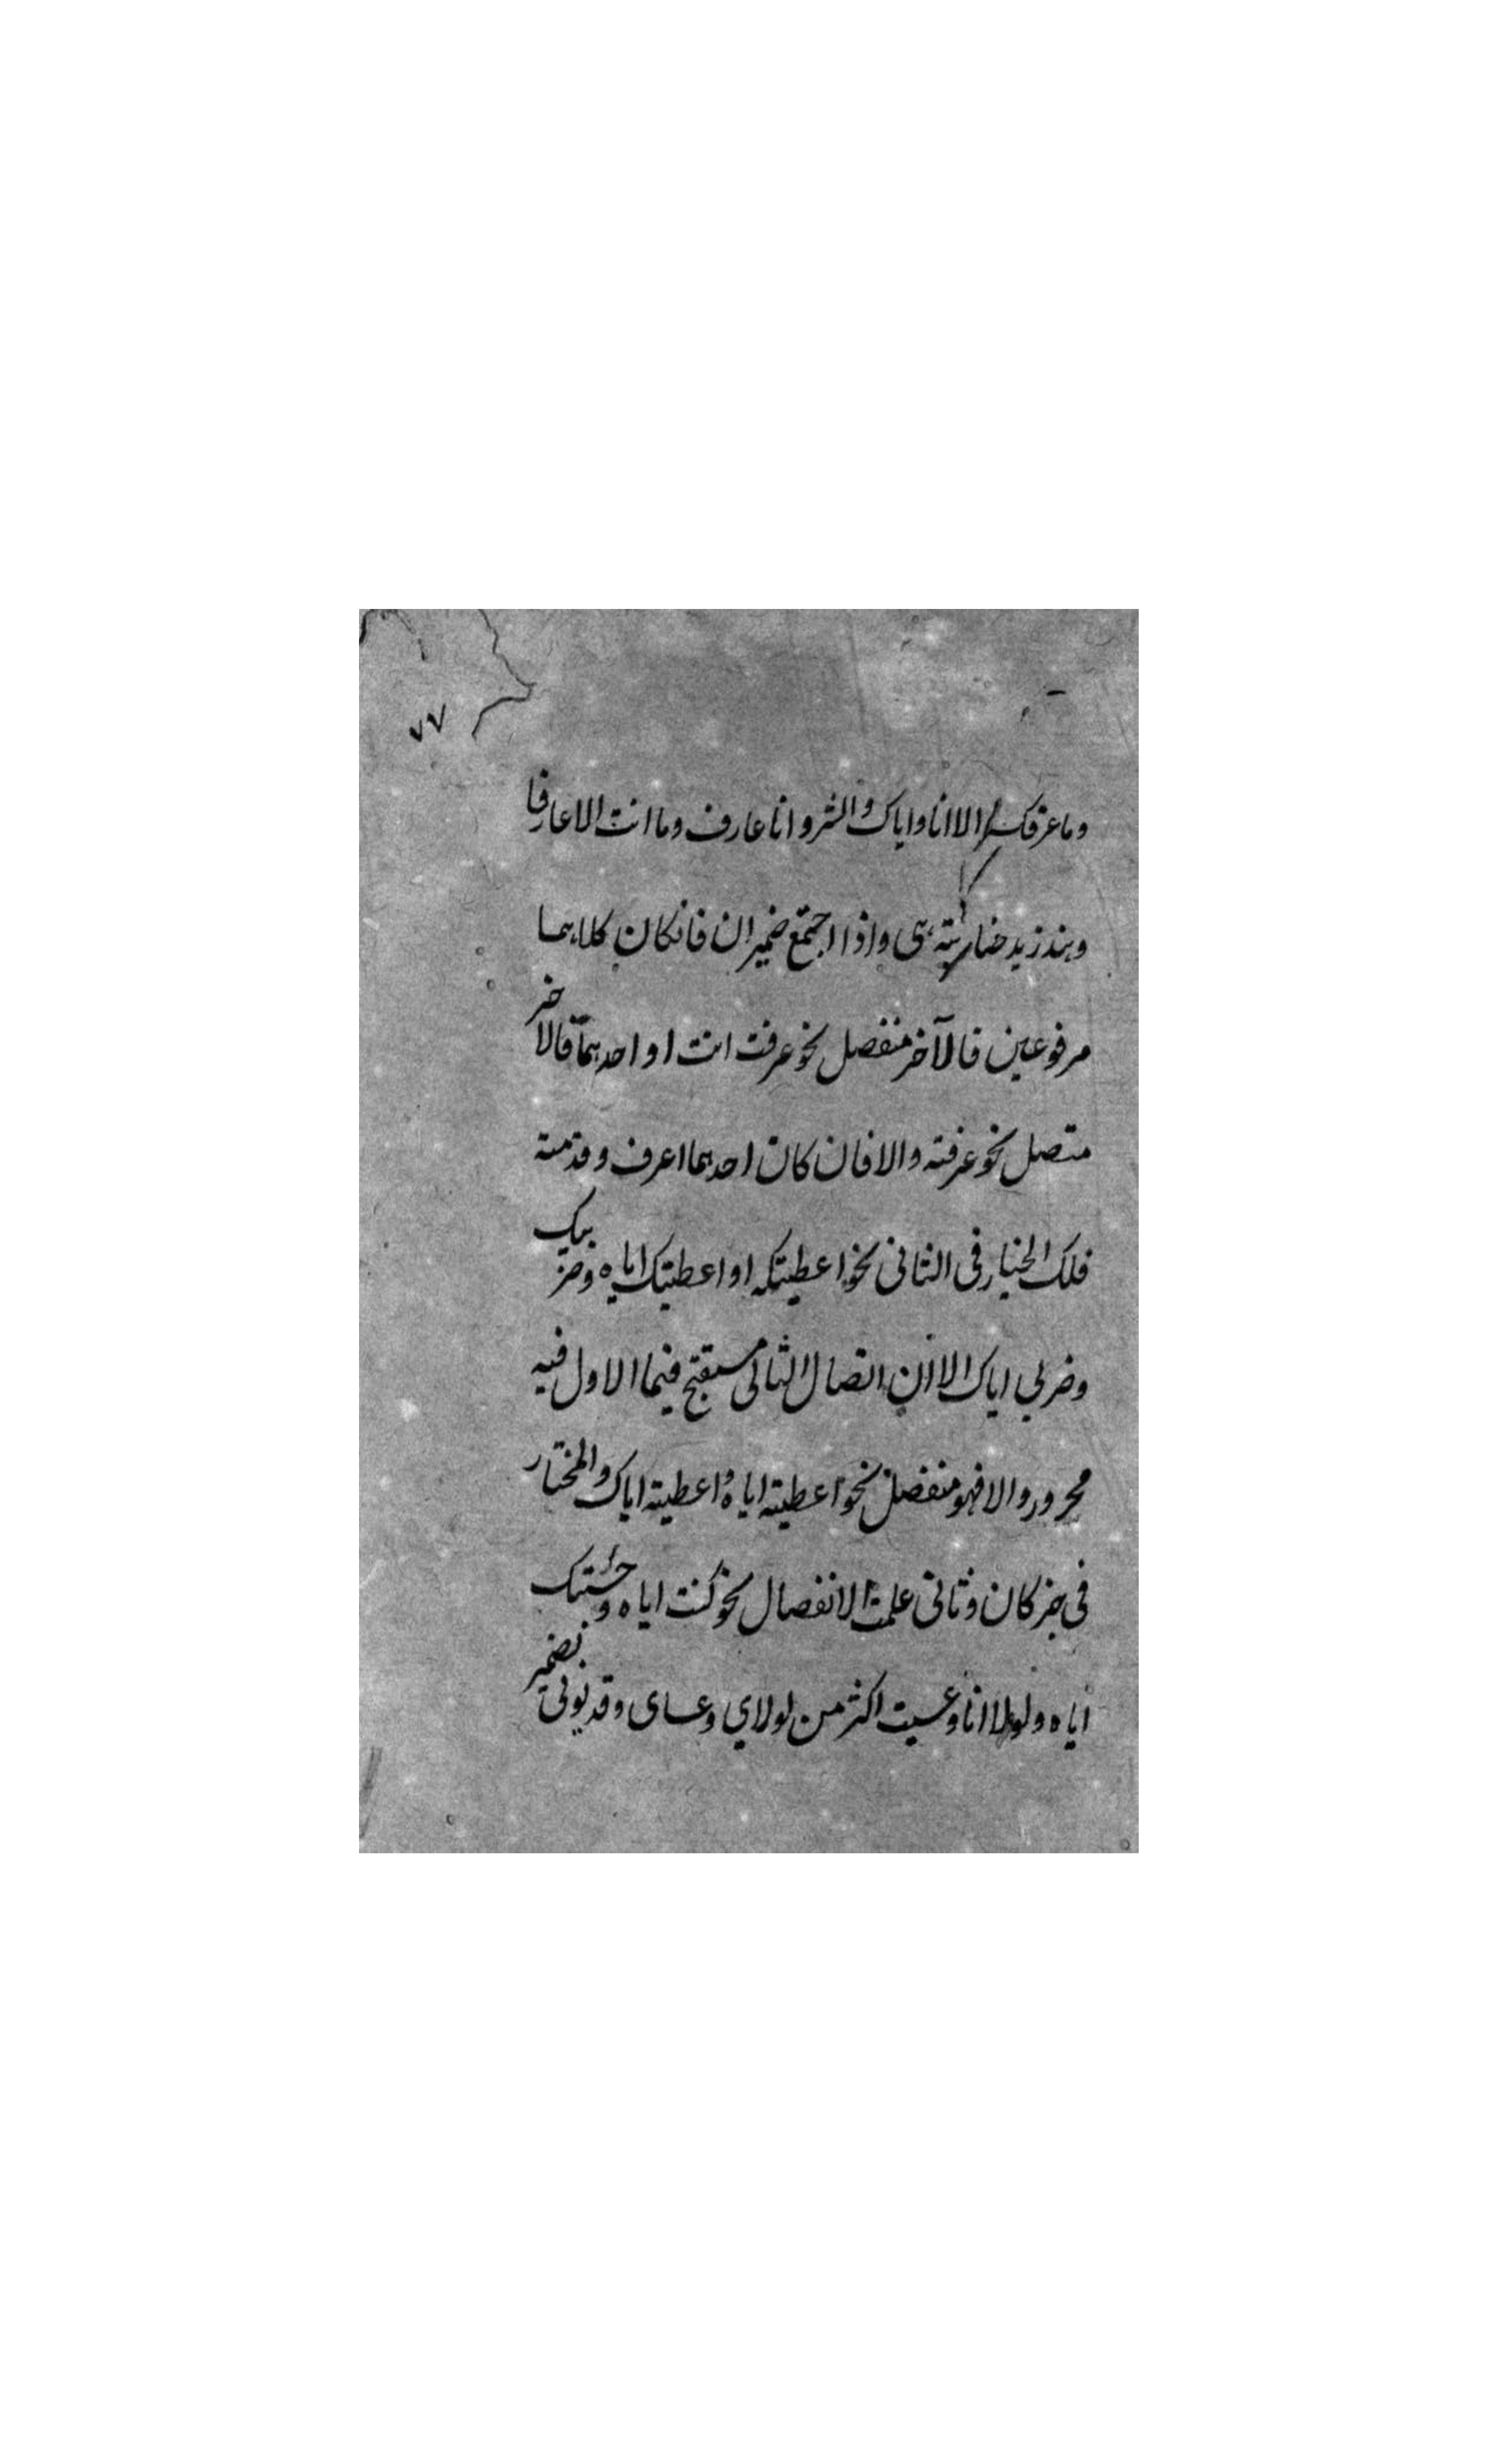 ٧٧
وما عرفك الا انا واياك والشر وانا عارف وما انت الا عارفا
وهند زيد ضاربته هى واذا اجتمع ضميران فانكان كلاهما
مرفوعين فالآخر منفصل نحو عرفت انت او احدهما فالآخر
متصل نحو عرفته والا فان كان احدهما اعرف وقدمته
فلك الخيار فى الثانى نحو اعطيتكه او اعطيتك اياه وضربيك
وضربى اياك الا ان اتصال الثانى مستقبح فيما الاول فيه
مجرور والا فهو منفصل نحو اعطيته اياه واعطيته اياك والمختار
فى خبر كان وثانى علمت الانفصال نحو كنت اياه وحسبتك
اياه ولولا انا وعسيت اكثر من لولاي وعساى وقد يؤتى بضمير